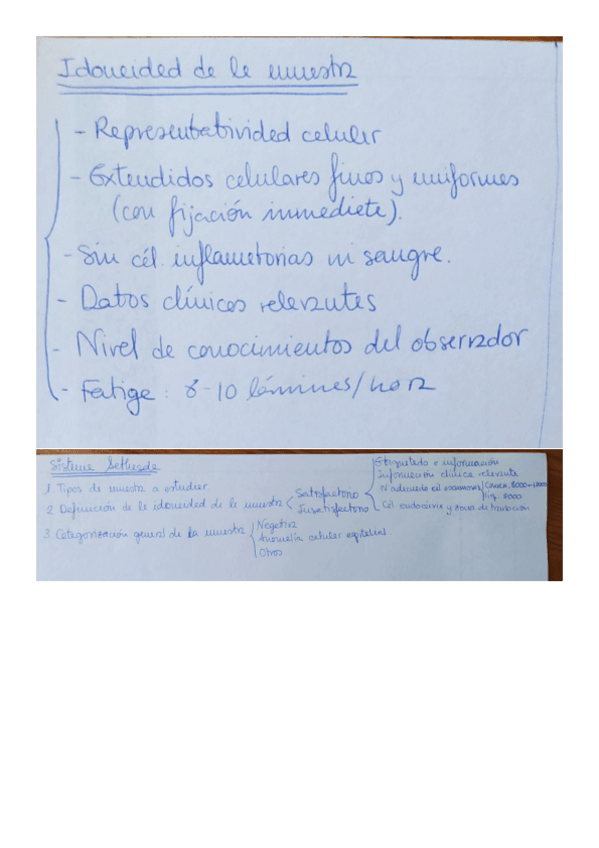 Idoneidad de la muestra
- Representatividad celular
- Extendidos celulares finos y uniformes
(con fijación inmediata).
- Sin cél. inflamatorias ni sangre.
- Datos clínicos relevantes
- Nivel de conocimientos del observador
- Fatiga: 8-10 láminas/hora
Sistema Bethesda
1. Tipos de muestra a estudiar
2. Definición de la idoneidad de la muestra
Satisfactorio
Insatisfactorio
Etiquetado e información
Información clínica relevante
Nº adecuado cél escamosas
Convec. 8000-12000
líq. 5000
Cél endocervix y zona de transición
3. Categorización general de la muestra
Negativa
Anomalía celular epitelial
Otros